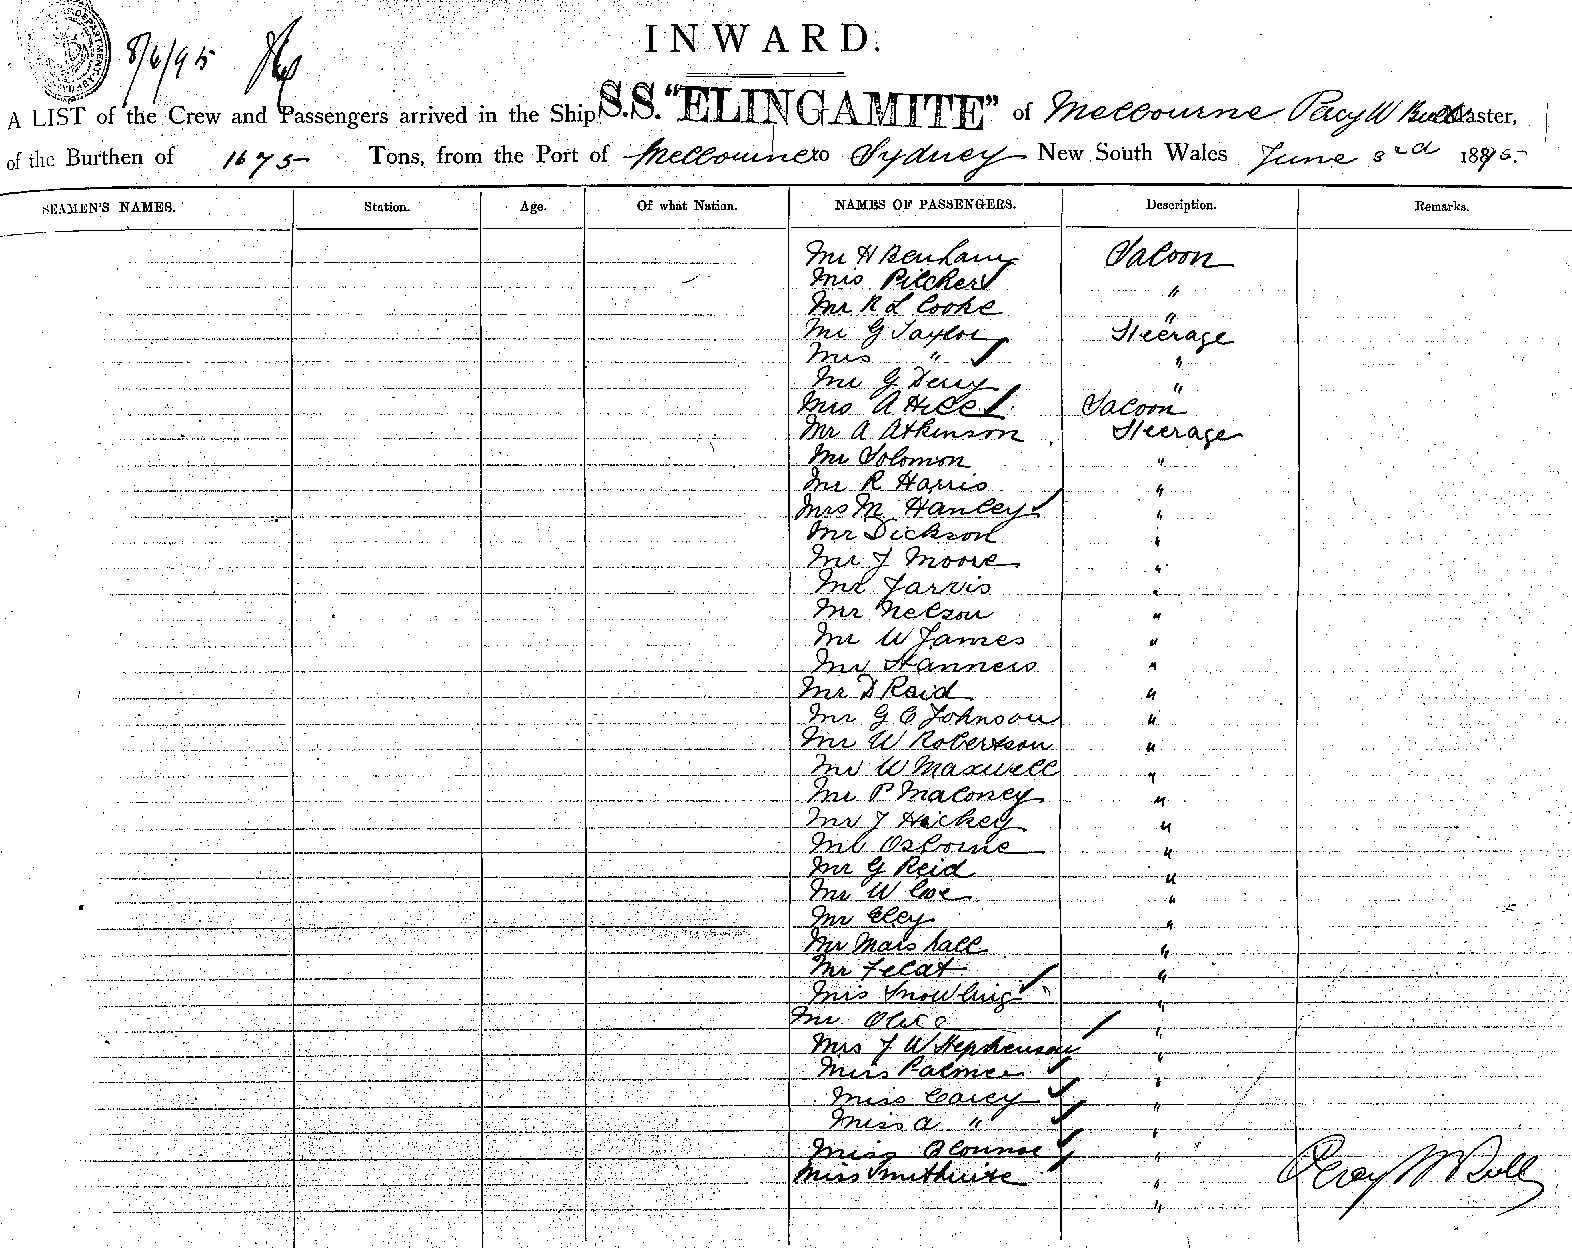 8/6/95
INWARD.
A LIST of the Crew and Passengers arrived in the Ship S.S. "ELINGAMITE" of Melbourne Percy W Bull Master,
of the Burthen of 1675 Tons, from the Port of Melbourne to Sydney New South Wales June 3rd 1895.
SEAMEN'S NAMES. Station. Age. Of what Nation. NAMES OF PASSENGERS. Description. Remarks.
Mr H Benham Saloon
Mis Pilcher "
Mr R L Cooke "
Mr G Taylor Steerage
Mrs " "
Mr G Derry "
Mrs A Hill Saloon
Mr A Atkinson Steerage
Mr Solomon "
Mr R Harris "
Mrs M Hanley "
Mr Dickson "
Mr J Moore "
Mr Jarvis "
Mr Nelson "
Mr W James "
Mr Stanners "
Mr D Reid "
Mr G C Johnson "
Mr W Robertson "
Mr W Maxwell "
Mr P Maloney "
Mr J Hickey "
Mr Osborne "
Mr G Reid "
Mr W Coe "
Mr Eley "
Mr Marshall "
Mr "
Mis Snowling "
Mr "
Mrs J W Stephenson "
Miss Palmer "
Miss Carey "
Miss A " "
Miss "
Miss "
"
Percy W Bull